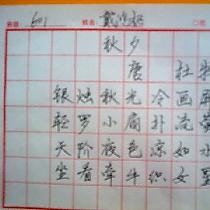 姓名: 戴
秋夕
唐 杜牧
银烛秋光冷画
轻罗小扇扑流萤
天阶夜色凉如水
坐看牵牛织女